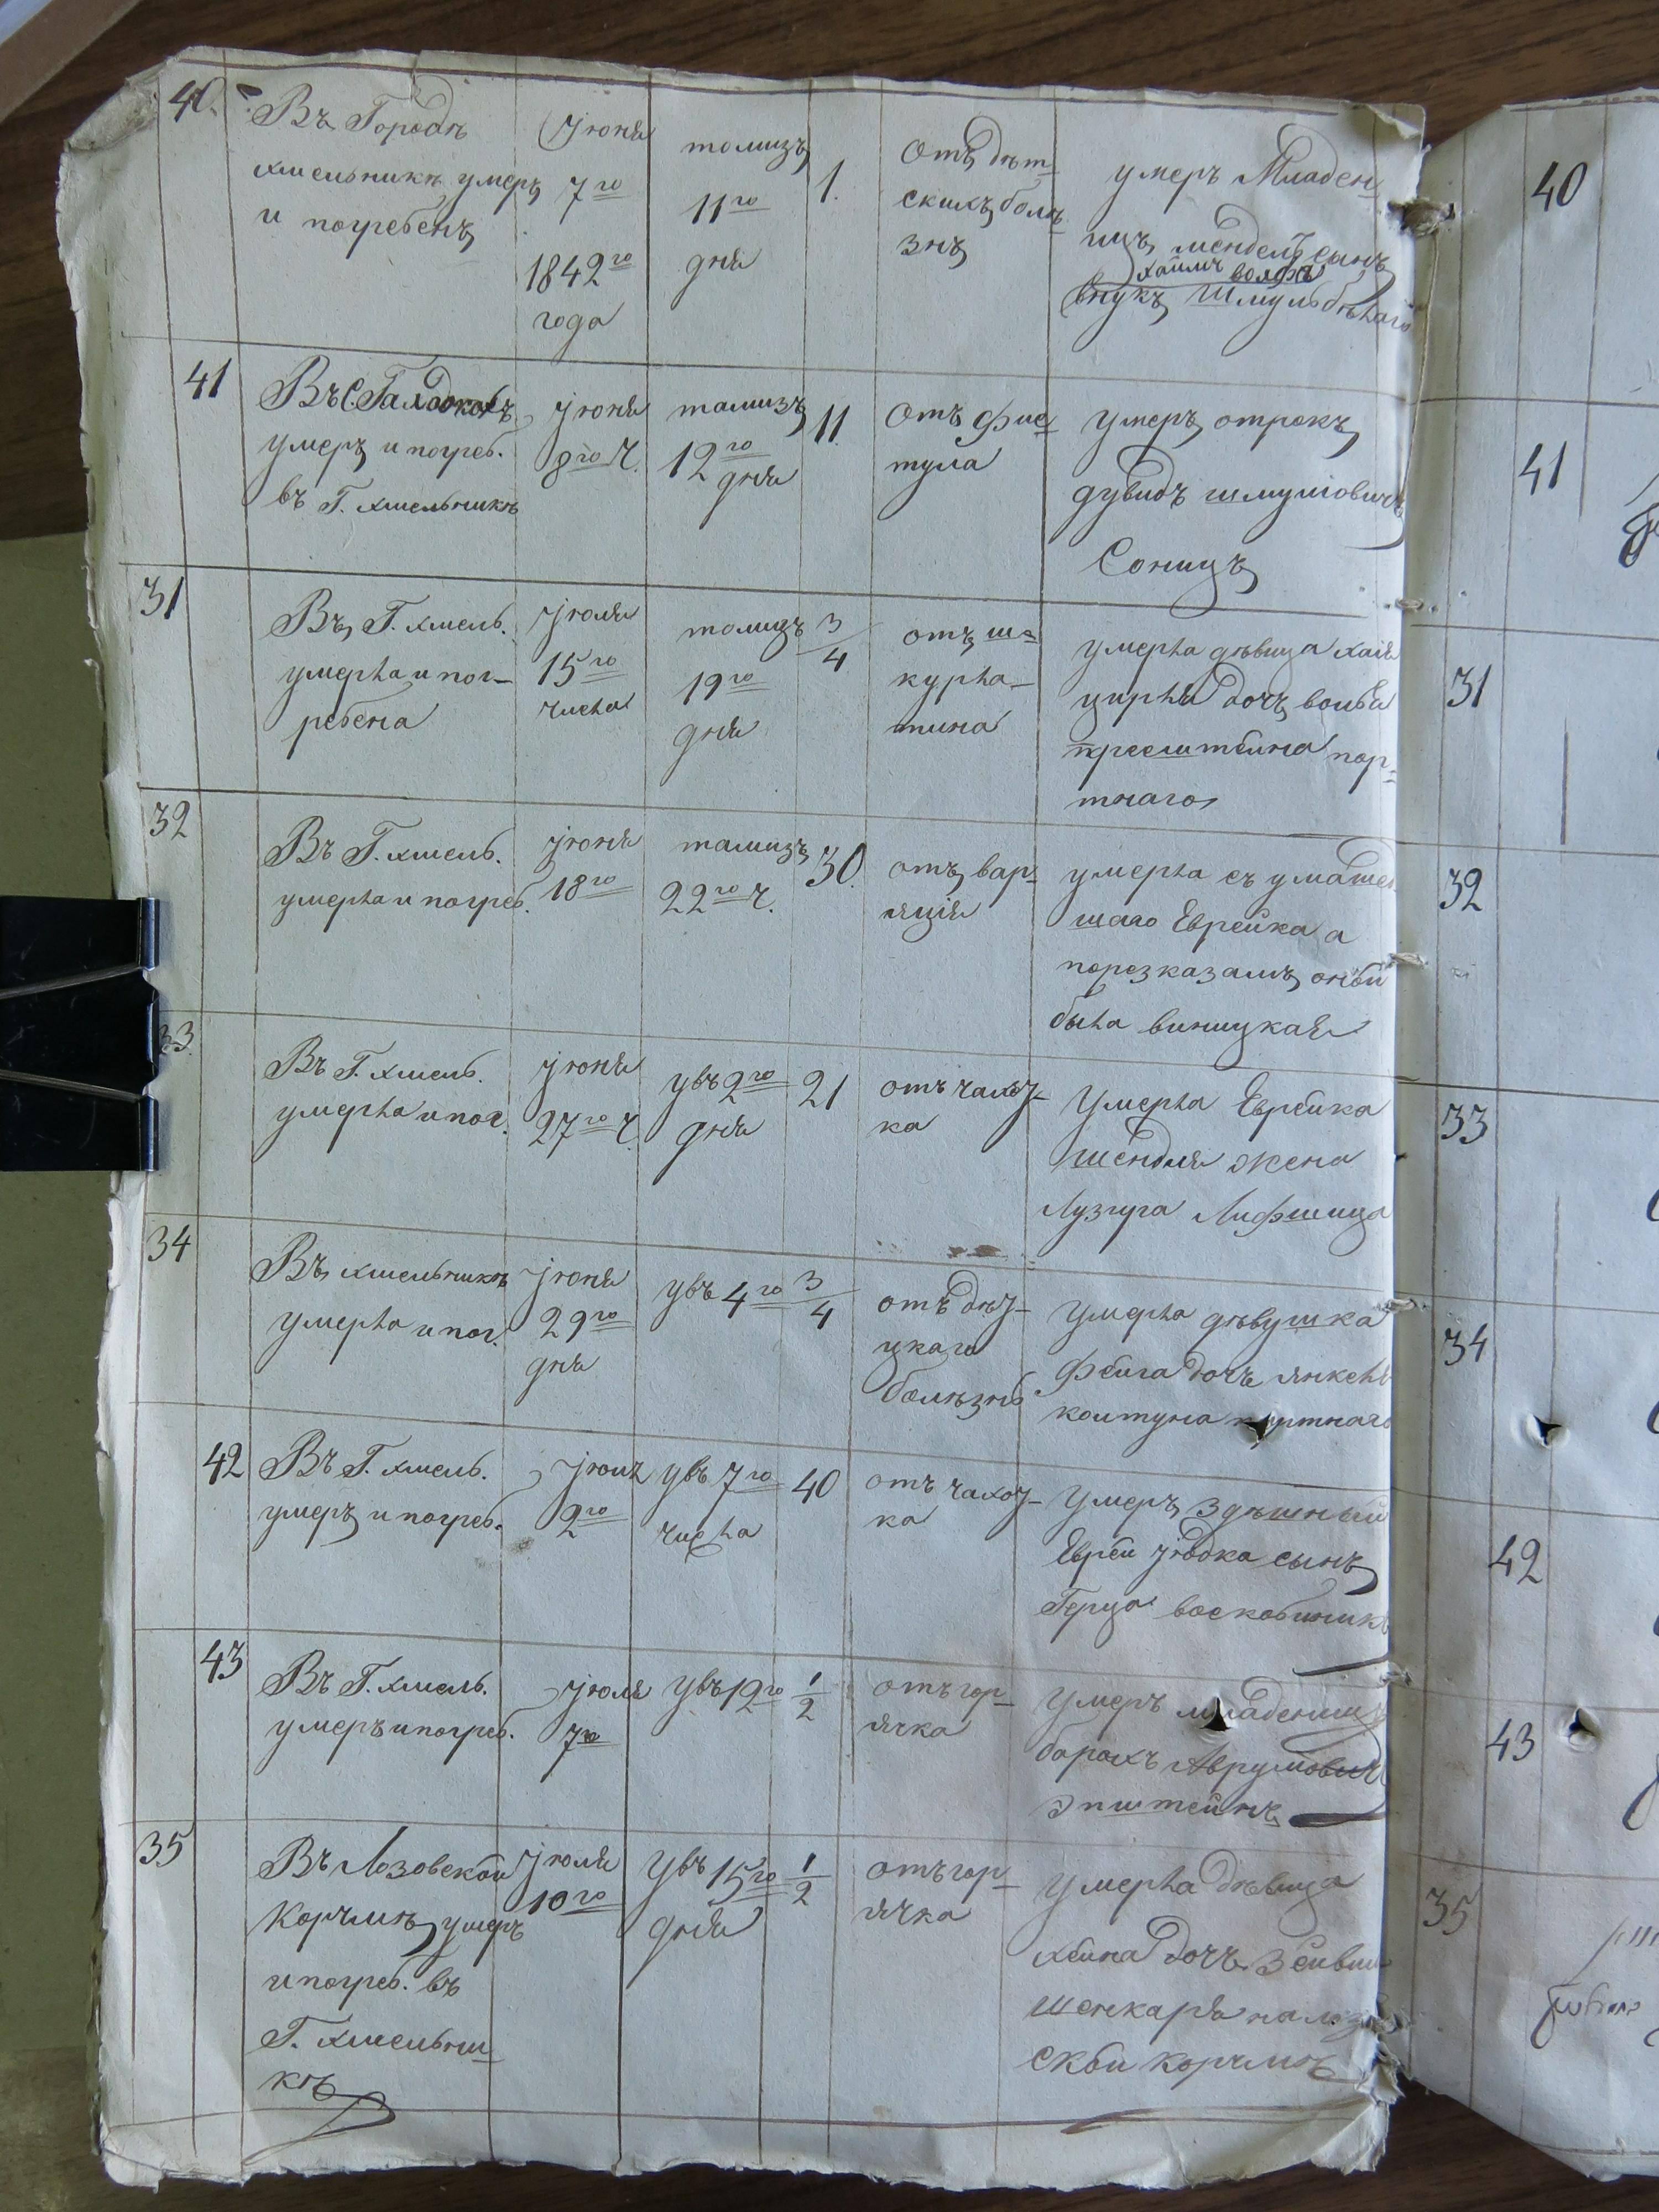 40. Въ Городѣ
хмельникѣ умеръ
и погребенъ
Июня
7го
1842го
года
томизъ
11го
дня
1.
Отъ дѣт-
скихъ болѣ-
знъ
умеръ Младен
ицъ мендель сынъ
хаимъ волфа
внукъ Шмуль бѣлаго
41
Въ С.
умеръ и погреб.
въ Г. хмельникѣ
Июня
8го Ч.
тамизъ
12го
дня
11.
Отъ фис-
тула
умеръ отрокъ
дувидъ шмулiовичъ
Соницъ
31
Въ Г. хмель.
умерла и пог-
ребена
Июля
15го
числа
томизъ
19го
дня
3/4
отъ ш-
курла-
тина
умерла дѣвица хаiя
цирля дочъ волья
пор-
тнаго
32
Въ Г. хмель.
умерла и погреб.
Июня
18го
тамизъ
22го Ч.
30.
отъ вар-
яцiя
умерла съ
шаго Еврейка а
порозказамъ оной
была виницкая
33
Въ Г. хмель.
умерла и пог.
Июня
27го Ч.
увъ 2го
дня
21
отъ чахот-
ка
Умерла Еврейка
шендля жена
Лузгура Лифшица
34
Въ хмельникѣ
умерла и пог.
Июня
29го
дня
увъ 4го
3/4
отъ
цкаго
болѣзнь
Умерла дѣвушка
фейга дочъ янкеля
колтуна портнаго
42
Въ Г. хмель.
умеръ и погреб.
Июля
2го
увъ 7го
числа
40
отъ чахот-
ка
Умеръ здѣшный
Еврей сынъ
Герца воскобиника
43
Въ Г. хмель.
умеръ и погреб.
Июля
7го
увъ 12го
1/2
отъ гор-
ячка
Умеръ младеницъ
барахъ Аврумовичъ
Эпштейнъ
35
Въ Лозовской
Корчмѣ умеръ
и погреб. въ
Г. хмельни-
кѣ
Июля
10го
увъ 15го
дня
1/2
отъ гор-
ячка
Умерла дѣвица
хейна дочъ
шенкаря на лозо
ской корчмѣ
40
41
31
32
33
34
42
43
35